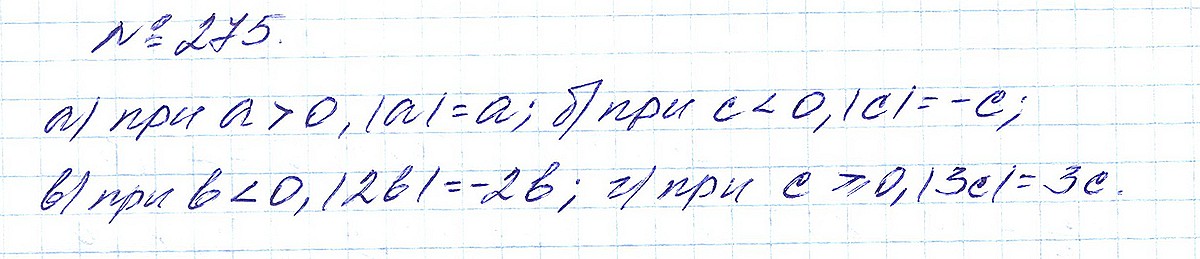 № 275.
а) при a > 0, |a| = a; б) при c < 0, |c| = -c;
в) при b < 0, |2b| = -2b; г) при c ⩾ 0, |3c| = 3c.